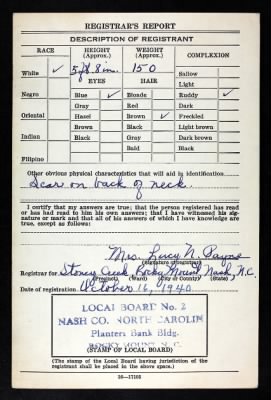 REGISTRAR'S REPORT
DESCRIPTION OF REGISTRANT
RACE HEIGHT (Approx.) WEIGHT (Approx.) COMPLEXION
White ✓ 5 ft. 8 in. 150 Sallow
EYES HAIR Light
Negro Blue ✓ Blonde Ruddy ✓
Gray Red Dark
Oriental Hazel Brown ✓ Freckled
Brown Black Light brown
Indian Black Gray Dark brown
Bald Black
Filipino
Other obvious physical characteristics that will aid in identification
Scar on back of neck.
I certify that my answers are true; that the person registered has read or has had read to him his own answers; that I have witnessed his signature or mark and that all of his answers of which I have knowledge are true, except as follows:
Mrs. Lucy N. Payne
(Signature of registrar)
Registrar for Stoney Creek Rocky Mount, Nash, N.C.
(Precinct) (Ward) (City or County) (State)
Date of registration October 16, 1940
LOCAL BOARD No. 2
NASH CO. NORTH CAROLIN
Planters Bank Bldg.
ROCKY MOUNT, N. C.
(STAMP OF LOCAL BOARD)
(The stamp of the Local Board having jurisdiction of the registrant shall be placed in the above space.)
16—17105